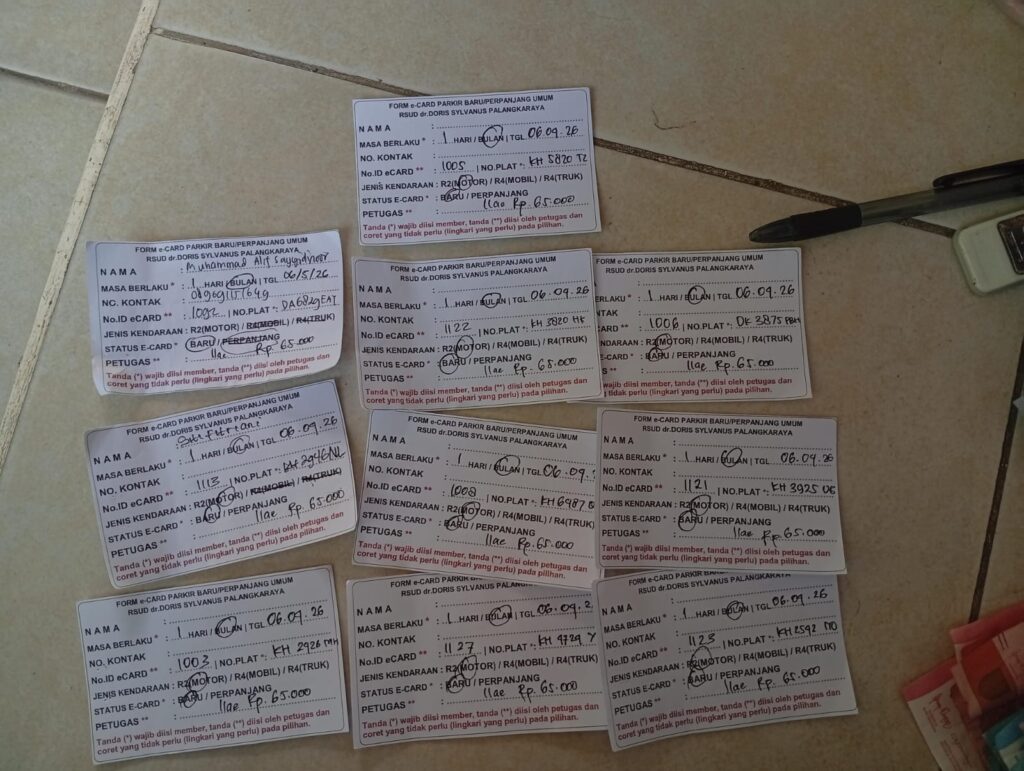 FORM e-CARD PARKIR BARU/PERPANJANG UMUM
RSUD dr.DORIS SYLVANUS PALANGKARAYA
N A M A :
MASA BERLAKU * : 1 HARI / BULAN | TGL 06.09.26
NO. KONTAK :
No.ID eCARD ** : 1005 | NO.PLAT *: KH 5820 TZ
JENIS KENDARAAN : R2(MOTOR) / R4(MOBIL) / R4(TRUK)
STATUS E-CARD * : BARU / PERPANJANG
PETUGAS ** : Rp. 65.000
Tanda (*) wajib diisi member, tanda (**) diisi oleh petugas dan
coret yang tidak perlu (lingkari yang perlu) pada pilihan.
FORM e-CARD PARKIR BARU/PERPANJANG UMUM
RSUD dr.DORIS SYLVANUS PALANGKARAYA
N A M A : Muhammad Alif
MASA BERLAKU * : 1 HARI / BULAN | TGL 06/5/26
NO. KONTAK :
No.ID eCARD ** : | NO.PLAT *:
JENIS KENDARAAN : R2(MOTOR) / R4(MOBIL) / R4(TRUK)
STATUS E-CARD * : BARU / PERPANJANG
PETUGAS ** : Rp. 65.000
Tanda (*) wajib diisi member, tanda (**) diisi oleh petugas dan
coret yang tidak perlu (lingkari yang perlu) pada pilihan.
FORM e-CARD PARKIR BARU/PERPANJANG UMUM
RSUD dr.DORIS SYLVANUS PALANGKARAYA
N A M A :
MASA BERLAKU * : 1 HARI / BULAN | TGL 06.09.26
NO. KONTAK :
No.ID eCARD ** : 1122 | NO.PLAT *: KH 3820
JENIS KENDARAAN : R2(MOTOR) / R4(MOBIL) / R4(TRUK)
STATUS E-CARD * : BARU / PERPANJANG
PETUGAS ** : Rp. 65.000
Tanda (*) wajib diisi member, tanda (**) diisi oleh petugas dan
coret yang tidak perlu (lingkari yang perlu) pada pilihan.
e-CARD PARKIR BARU/PERPANJANG UMUM
RSUD dr.DORIS SYLVANUS PALANGKARAYA
: 1 HARI / BULAN | TGL 06.09.26
: 1006 | NO.PLAT *: DK 3875
KENDARAAN : R2(MOTOR) / R4(MOBIL) / R4(TRUK)
E-CARD * : BARU / PERPANJANG
Rp. 65.000
(*) wajib diisi member, tanda (**) diisi oleh petugas dan
yang tidak perlu (lingkari yang perlu) pada pilihan.
FORM e-CARD PARKIR BARU/PERPANJANG UMUM
RSUD dr.DORIS SYLVANUS PALANGKARAYA
N A M A :
MASA BERLAKU * : 1 HARI / BULAN | TGL 06.09.26
NO. KONTAK :
No.ID eCARD ** : 1113 | NO.PLAT *: KH 2946 NL
JENIS KENDARAAN : R2(MOTOR) / R4(MOBIL) / R4(TRUK)
STATUS E-CARD * : BARU / PERPANJANG
PETUGAS ** : Rp. 65.000
Tanda (*) wajib diisi member, tanda (**) diisi oleh petugas dan
coret yang tidak perlu (lingkari yang perlu) pada pilihan.
FORM e-CARD PARKIR BARU/PERPANJANG UMUM
RSUD dr.DORIS SYLVANUS PALANGKARAYA
N A M A :
MASA BERLAKU * : 1 HARI / BULAN | TGL 06.09.
NO. KONTAK :
No.ID eCARD ** : | NO.PLAT *: KH 6487
JENIS KENDARAAN : R2(MOTOR) / R4(MOBIL) / R4(TRUK)
STATUS E-CARD * : BARU / PERPANJANG
PETUGAS ** : Rp. 65.000
Tanda (*) wajib diisi member, tanda (**) diisi oleh petugas dan
coret yang tidak perlu (lingkari yang perlu) pada pilihan.
FORM e-CARD PARKIR BARU/PERPANJANG UMUM
RSUD dr.DORIS SYLVANUS PALANGKARAYA
N A M A :
MASA BERLAKU * : 1 HARI / BULAN | TGL 06.09.26
NO. KONTAK :
No.ID eCARD ** : 1121 | NO.PLAT *: KH 3925
JENIS KENDARAAN : R2(MOTOR) / R4(MOBIL) / R4(TRUK)
STATUS E-CARD * : BARU / PERPANJANG
PETUGAS ** : Rp. 65.000
Tanda (*) wajib diisi member, tanda (**) diisi oleh petugas dan
coret yang tidak perlu (lingkari yang perlu) pada pilihan.
FORM e-CARD PARKIR BARU/PERPANJANG UMUM
RSUD dr.DORIS SYLVANUS PALANGKARAYA
N A M A :
MASA BERLAKU * : 1 HARI / BULAN | TGL 06.09.26
NO. KONTAK :
No.ID eCARD ** : 1003 | NO.PLAT *: KH 2926
JENIS KENDARAAN : R2(MOTOR) / R4(MOBIL) / R4(TRUK)
STATUS E-CARD * : BARU / PERPANJANG
PETUGAS ** : Rp. 65.000
Tanda (*) wajib diisi member, tanda (**) diisi oleh petugas dan
coret yang tidak perlu (lingkari yang perlu) pada pilihan.
FORM e-CARD PARKIR BARU/PERPANJANG UMUM
RSUD dr.DORIS SYLVANUS PALANGKARAYA
N A M A :
MASA BERLAKU * : 1 HARI / BULAN | TGL 06.09.
NO. KONTAK :
No.ID eCARD ** : 1127 | NO.PLAT *: KH 4729 Y
JENIS KENDARAAN : R2(MOTOR) / R4(MOBIL) / R4(TRUK)
STATUS E-CARD * : BARU / PERPANJANG
PETUGAS ** : Rp. 65.000
Tanda (*) wajib diisi member, tanda (**) diisi oleh petugas dan
coret yang tidak perlu (lingkari yang perlu) pada pilihan.
FORM e-CARD PARKIR BARU/PERPANJANG UMUM
RSUD dr.DORIS SYLVANUS PALANGKARAYA
N A M A :
MASA BERLAKU * : 1 HARI / BULAN | TGL 06.09.26
NO. KONTAK :
No.ID eCARD ** : 1123 | NO.PLAT *: KH 2592
JENIS KENDARAAN : R2(MOTOR) / R4(MOBIL) / R4(TRUK)
STATUS E-CARD * : BARU / PERPANJANG
PETUGAS ** : Rp. 65.000
Tanda (*) wajib diisi member, tanda (**) diisi oleh petugas dan
coret yang tidak perlu (lingkari yang perlu) pada pilihan.